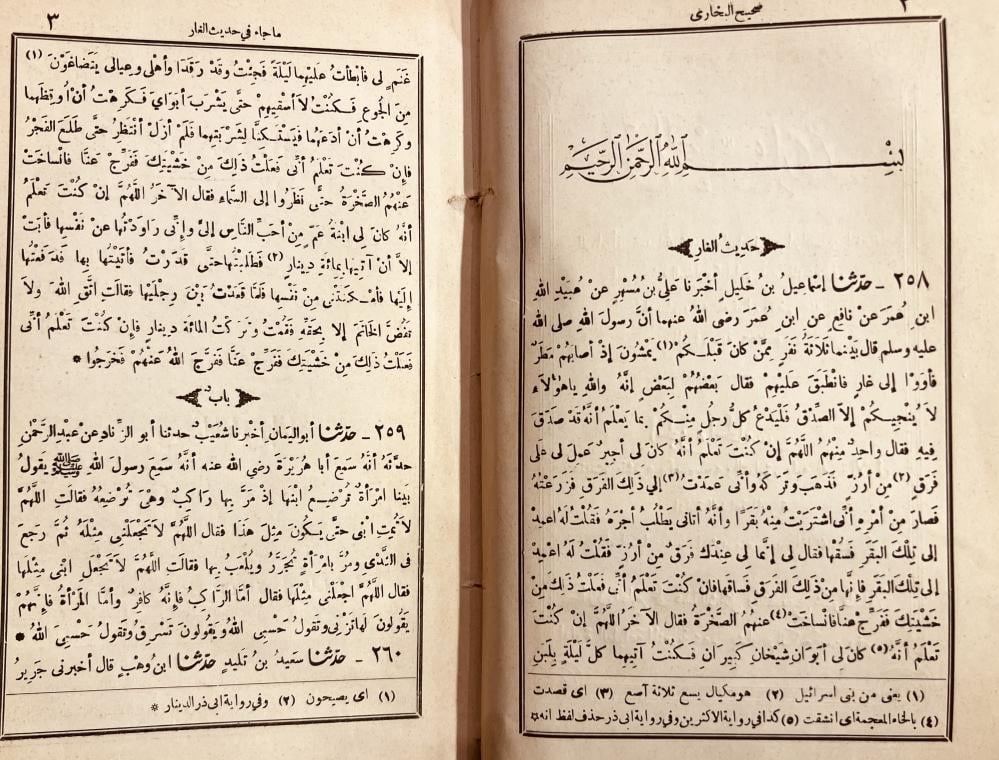 ٢
صحيح البخارى
بسم الله الرحمن الرحيم
حديث الغار
٢٥٨ ـ حدّثنا إسْمَاعِيلُ بنُ خَلِيلٍ أخْبَرَنا عَلِىُّ بنُ مُسْهِرٍ عَنْ عُبَيْدِ اللهِ
ابنِ عُمَرَ عن نافِعٍ عنِ ابنِ عُمَرَ رضى الله عنهما أنَّ رسولَ اللهِ صلى الله
عليه وسلم قال بَيْنَما ثَلاثَةُ نَفَرٍ مِمَّنْ كانَ قَبْلَكُمْ(١) يَمْشُونَ إذْ أصابَهُمْ مَطَرٌ
فأوَوْا إلى غارٍ فانْطَبَقَ عَلَيْهِمْ فقال بَعْضُهُمْ لِبَعْضٍ إنَّهُ واللهِ ياهؤُلاءِ
لا يُنْجِيكُمْ إلاَّ الصِّدْقُ فَلْيَدْعُ كلُّ رجُلٍ مِنْكُمْ بِما يَعْلَمُ أنَّهُ قَدْ صَدَقَ
فِيهِ فقال واحِدٌ مِنْهُمُ اللَّهُمَّ إنْ كُنْتَ تَعْلَمُ أنَّهُ كانَ لى أجِيرٌ عَمِلَ لى على
فَرَقٍ(٢) مِنْ أرُزٍّ فَذَهَبَ وتَرَكَهُ وأنِّى عَمَدْتُ(٣) إلى ذَلِكَ الفَرَقِ فَزَرَعْتُهُ
فَصارَ مِنْ أمْرِهِ أنِّى اشْتَرَيْتُ مِنْهُ بَقَرًا وأنَّهُ أتانى يَطْلُبُ أجْرَهُ فَقُلْتُ لَهُ اعمِدْ
إلى تِلْكَ البَقَرِ فَسُقْها فقال لى إنَّما لى عِنْدَكَ فَرَقٌ مِنْ أرُزٍّ فَقُلْتُ لَهُ اعْمِدْ
إلى تِلْكَ البَقَرِ فإنَّها مِنْ ذَلِكَ الفَرَقِ فَساقَها فإنْ كُنْتَ تَعْلَمُ أنِّى فَعَلْتُ ذَلِكَ مِنْ
خَشْيَتِكَ فَفَرِّجْ عَنَّا فانْساخَتْ(٤) عنهُمُ الصَّخْرَةُ فقال الآخَرُ اللَّهُمَّ إنْ كُنْتَ
تَعْلَمُ أنَّهُ(٥) كانَ لى أبَوَانِ شَيْخانِ كَبِيرانِ فَكُنْتُ آتِيهِما كلَّ لَيْلَةٍ بِلَبَنِ
(١) يعنى من بنى اسرائيل (٢) هو مكيال يسع ثلاثة آصع (٣) اى قصدت
(٤) بالخاء المعجمة اى انشقت (٥) كذا فى رواية الاكثرين وفى رواية ابى ذر حذف لفظ انه *
ما جاء فى حديث الغار
٣
غَنَمٍ لى فأبْطأتُ عَلَيْهِما لَيْلَةً فَجِئْتُ وقَدْ رَقَدَا وأهْلِى وعِيالى يَتَضاغَوْنَ (١)
مِنَ الجُوعِ فَكُنْتُ لا أسْقِيهِمْ حتَّى يَشْرَبَ أبَوَاىَ فَكَرِهْتُ أنْ أُوقِظَهُما
وكَرِهْتُ أنْ أدَعَهُما فَيَسْتَكِنَّا لِشَرْبَتِهِما فَلَمْ أزَلْ أنْتَظِرُ حتَّى طَلَعَ الفَجْرُ
فإنْ كُنْتَ تَعْلَمُ أنِّى فَعَلْتُ ذَلِكَ مِنْ خَشْيَتِكَ فَفَرِّجْ عَنَّا فانْساخَتْ
عَنْهُمُ الصَّخْرَةُ حتَّى نَظَرُوا إلى السَّماءِ فقال الآخَرُ اللَّهُمَّ إنْ كُنْتَ تَعْلَمُ
أنَّهُ كانَ لى ابْنَةُ عَمٍّ مِنْ أحَبِّ النَّاسِ إلَىَّ وإنِّى رَاوَدْتُها عَنْ نَفْسِها فأبَتْ
إلاَّ أنْ آتِيَها بِمائَةِ دِينارٍ (٢) فَطَلَبْتُها حتى قَدَرْتُ فأتَيْتُها بِها فَدَفَعْتُها
إلَيْها فأمْكَنَتْنِى مِنْ نَفْسِها فَلَمَّا قَعَدْتُ بَيْنَ رِجْلَيْها فقالَتِ اتَّقِ اللهَ ولاَ
تَفُضَّ الخَاتَمَ إلا بِحَقِّهِ فَقُمْتُ وتَرَكْتُ المائَةَ دِينارٍ فإنْ كُنْتَ تَعْلَمُ أنِّى
فَعَلْتُ ذَلِكَ مِنْ خَشْيَتِكَ فَفَرِّجْ عَنَّا فَفَرَّجَ اللهُ عَنْهُمْ فَخَرَجُوا *
باب
٢٥٩ ـ حدّثنا أبو اليَمانِ أخبرنا شُعَيْبٌ حدثنا أبو الزِّنادِ عن عبْدِ الرَّحْمنِ
حدَّثَهُ أنَّهُ سَمِعَ أبا هُرَيْرَةَ رضى الله عنه أنَّهُ سَمِعَ رسولَ اللهِ ﷺ يَقُولُ
بَيْنا امْرأةٌ تُرْضِعُ ابْنَها إذْ مَرَّ بِها رَاكِبٌ وهْىَ تُرْضِعُهُ فقالَتِ اللَّهُمَّ
لاَ تُمِتِ ابْنِى حتَّى يَكُونَ مِثْلَ هَذَا فقال اللَّهُمَّ لاَ تَجْعَلْنِى مِثْلَهُ ثُمَّ رَجَعَ
فى الثَّدْىِ ومُرَّ بامْرَأةٍ تُجَرَّرُ ويُلْعَبُ بِها فقالَتِ اللَّهُمَّ لاَ تَجْعَلِ ابْنِى مِثْلَها
فقال اللَّهُمَّ اجْعَلْنِى مِثْلَها فقال أمَّا الرَّاكِبُ فإنَّهُ كافِرٌ وأمَّا المَرْأةُ فإنَّهُمْ
يَقُولونَ لَها تَزْنِى وتَقُولُ حَسْبِىَ اللهُ ويَقُولونَ تَسْرِقُ وتَقُولُ حَسْبِىَ اللهُ *
٢٦٠ ـ حدّثنا سَعِيدُ بنُ تَلِيدٍ حدّثنا ابنُ وهْبٍ قال أخبرنى جَرِيرُ
(١) اى يصيحون (٢) وفى رواية ابى ذر الدينار *